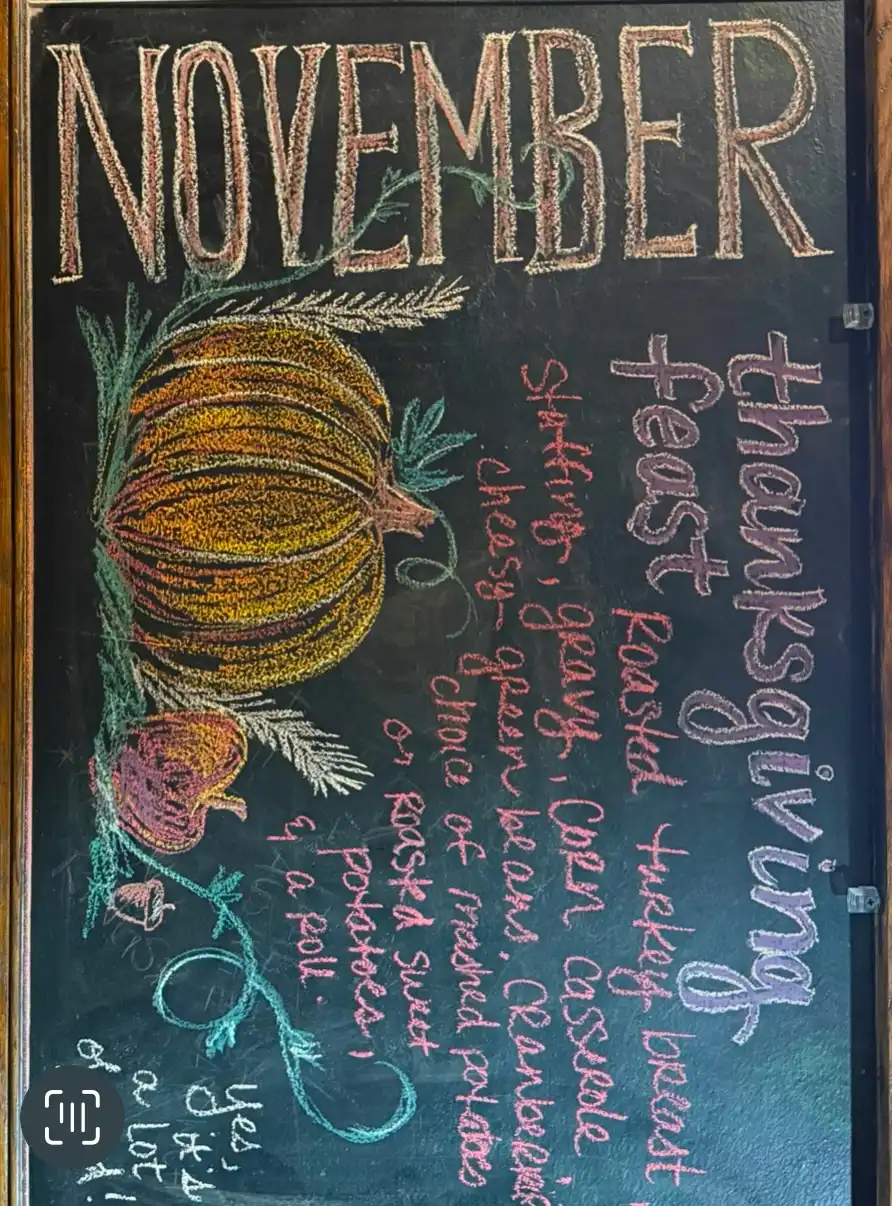 NOVEMBER
thanksgiving
feast
Roasted turkey breast,
Stuffing, gravy, Corn Casserole
cheesy green beans, Cranberries
choice of mashed potatoes
or roasted sweet
potatoes,
& a roll.
yes,
it's
a lot
of